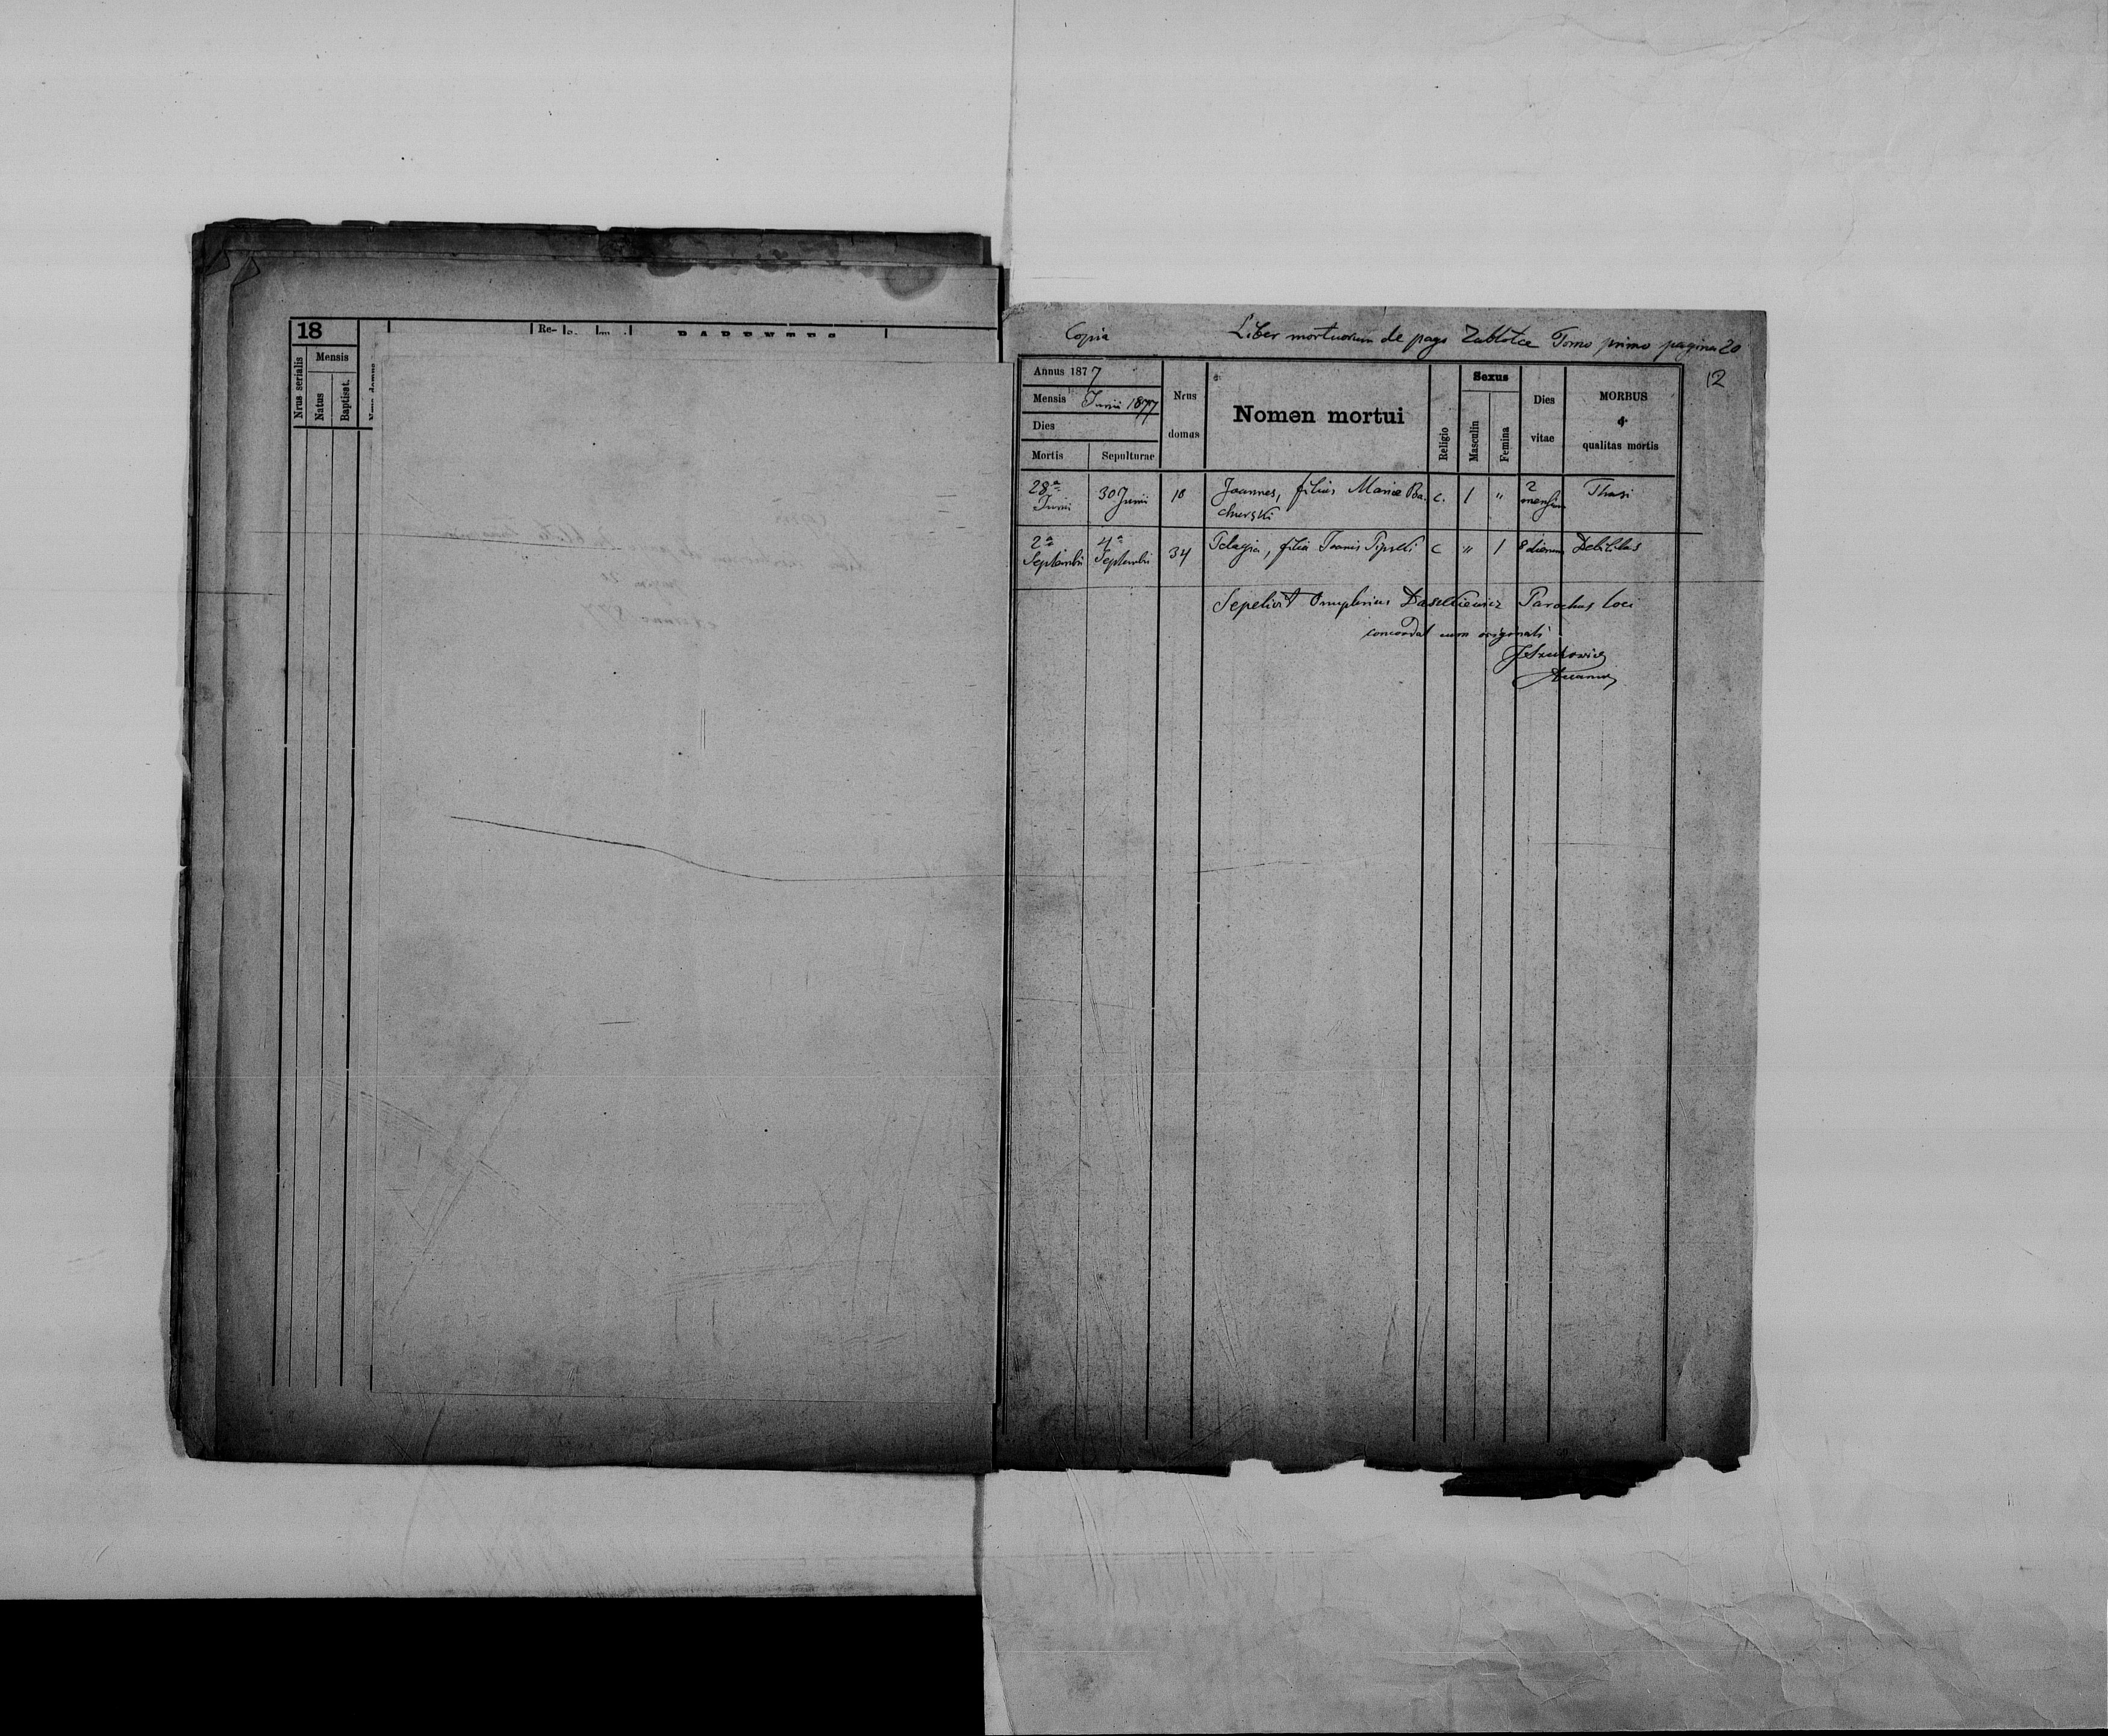 18
Nrus serialis
Mensis
Natus
Baptisat.
Re-
PARENTES
Copia
Liber mortuorum de pago Zabłotce Tomo primo pagina 20
12
Annus 1877
Mensis Junii 1877
Dies
Mortis
Sepulturae
Nrus domus
Nomen mortui
Religio
Sexus
Masculin
Femina
Dies vitae
MORBUS & qualitas mortis
28a Junii 30 Junii 18 Joannes, filius Mariae Ba- c. 1 " 2 mensium
churski
2a Septembris 4a Septembris 34 Pelagia, filia Joannis c " 1 8 dierum Debilitas
Sepelivit Onuphrius Parochus loci
concordat cum originali